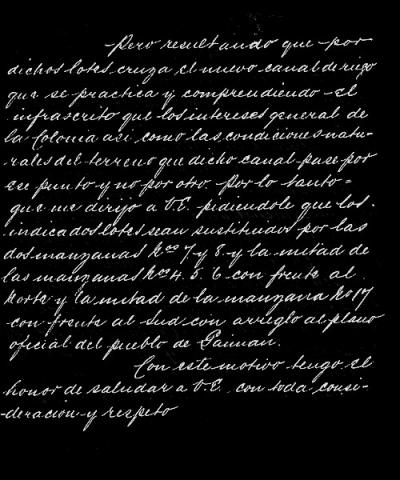 Pero resultando que por
dichos lotes, cruza, el nuevo canal de riego
que se practica y comprendiendo el
infrascrito que los intereses general de
la Colonia asi como las condiciones natu-
rales del terreno que dicho canal pase por
ese punto y no por otro. Por lo tanto =
que me dirijo a V.E. pidiendole que los
indicados lotes sean sustituidos por las
dos manzanas Nos 7 y 8 y la mitad de
las manzanas Nos 4. 5. 6 con frente al
Norte y la mitad de la manzana No 17
con frente al Sud con arreglo al plano
oficial del pueblo de Gaiman.
Con este motivo tengo el
honor de saludar a V.E. con toda consi-
-deración y respeto